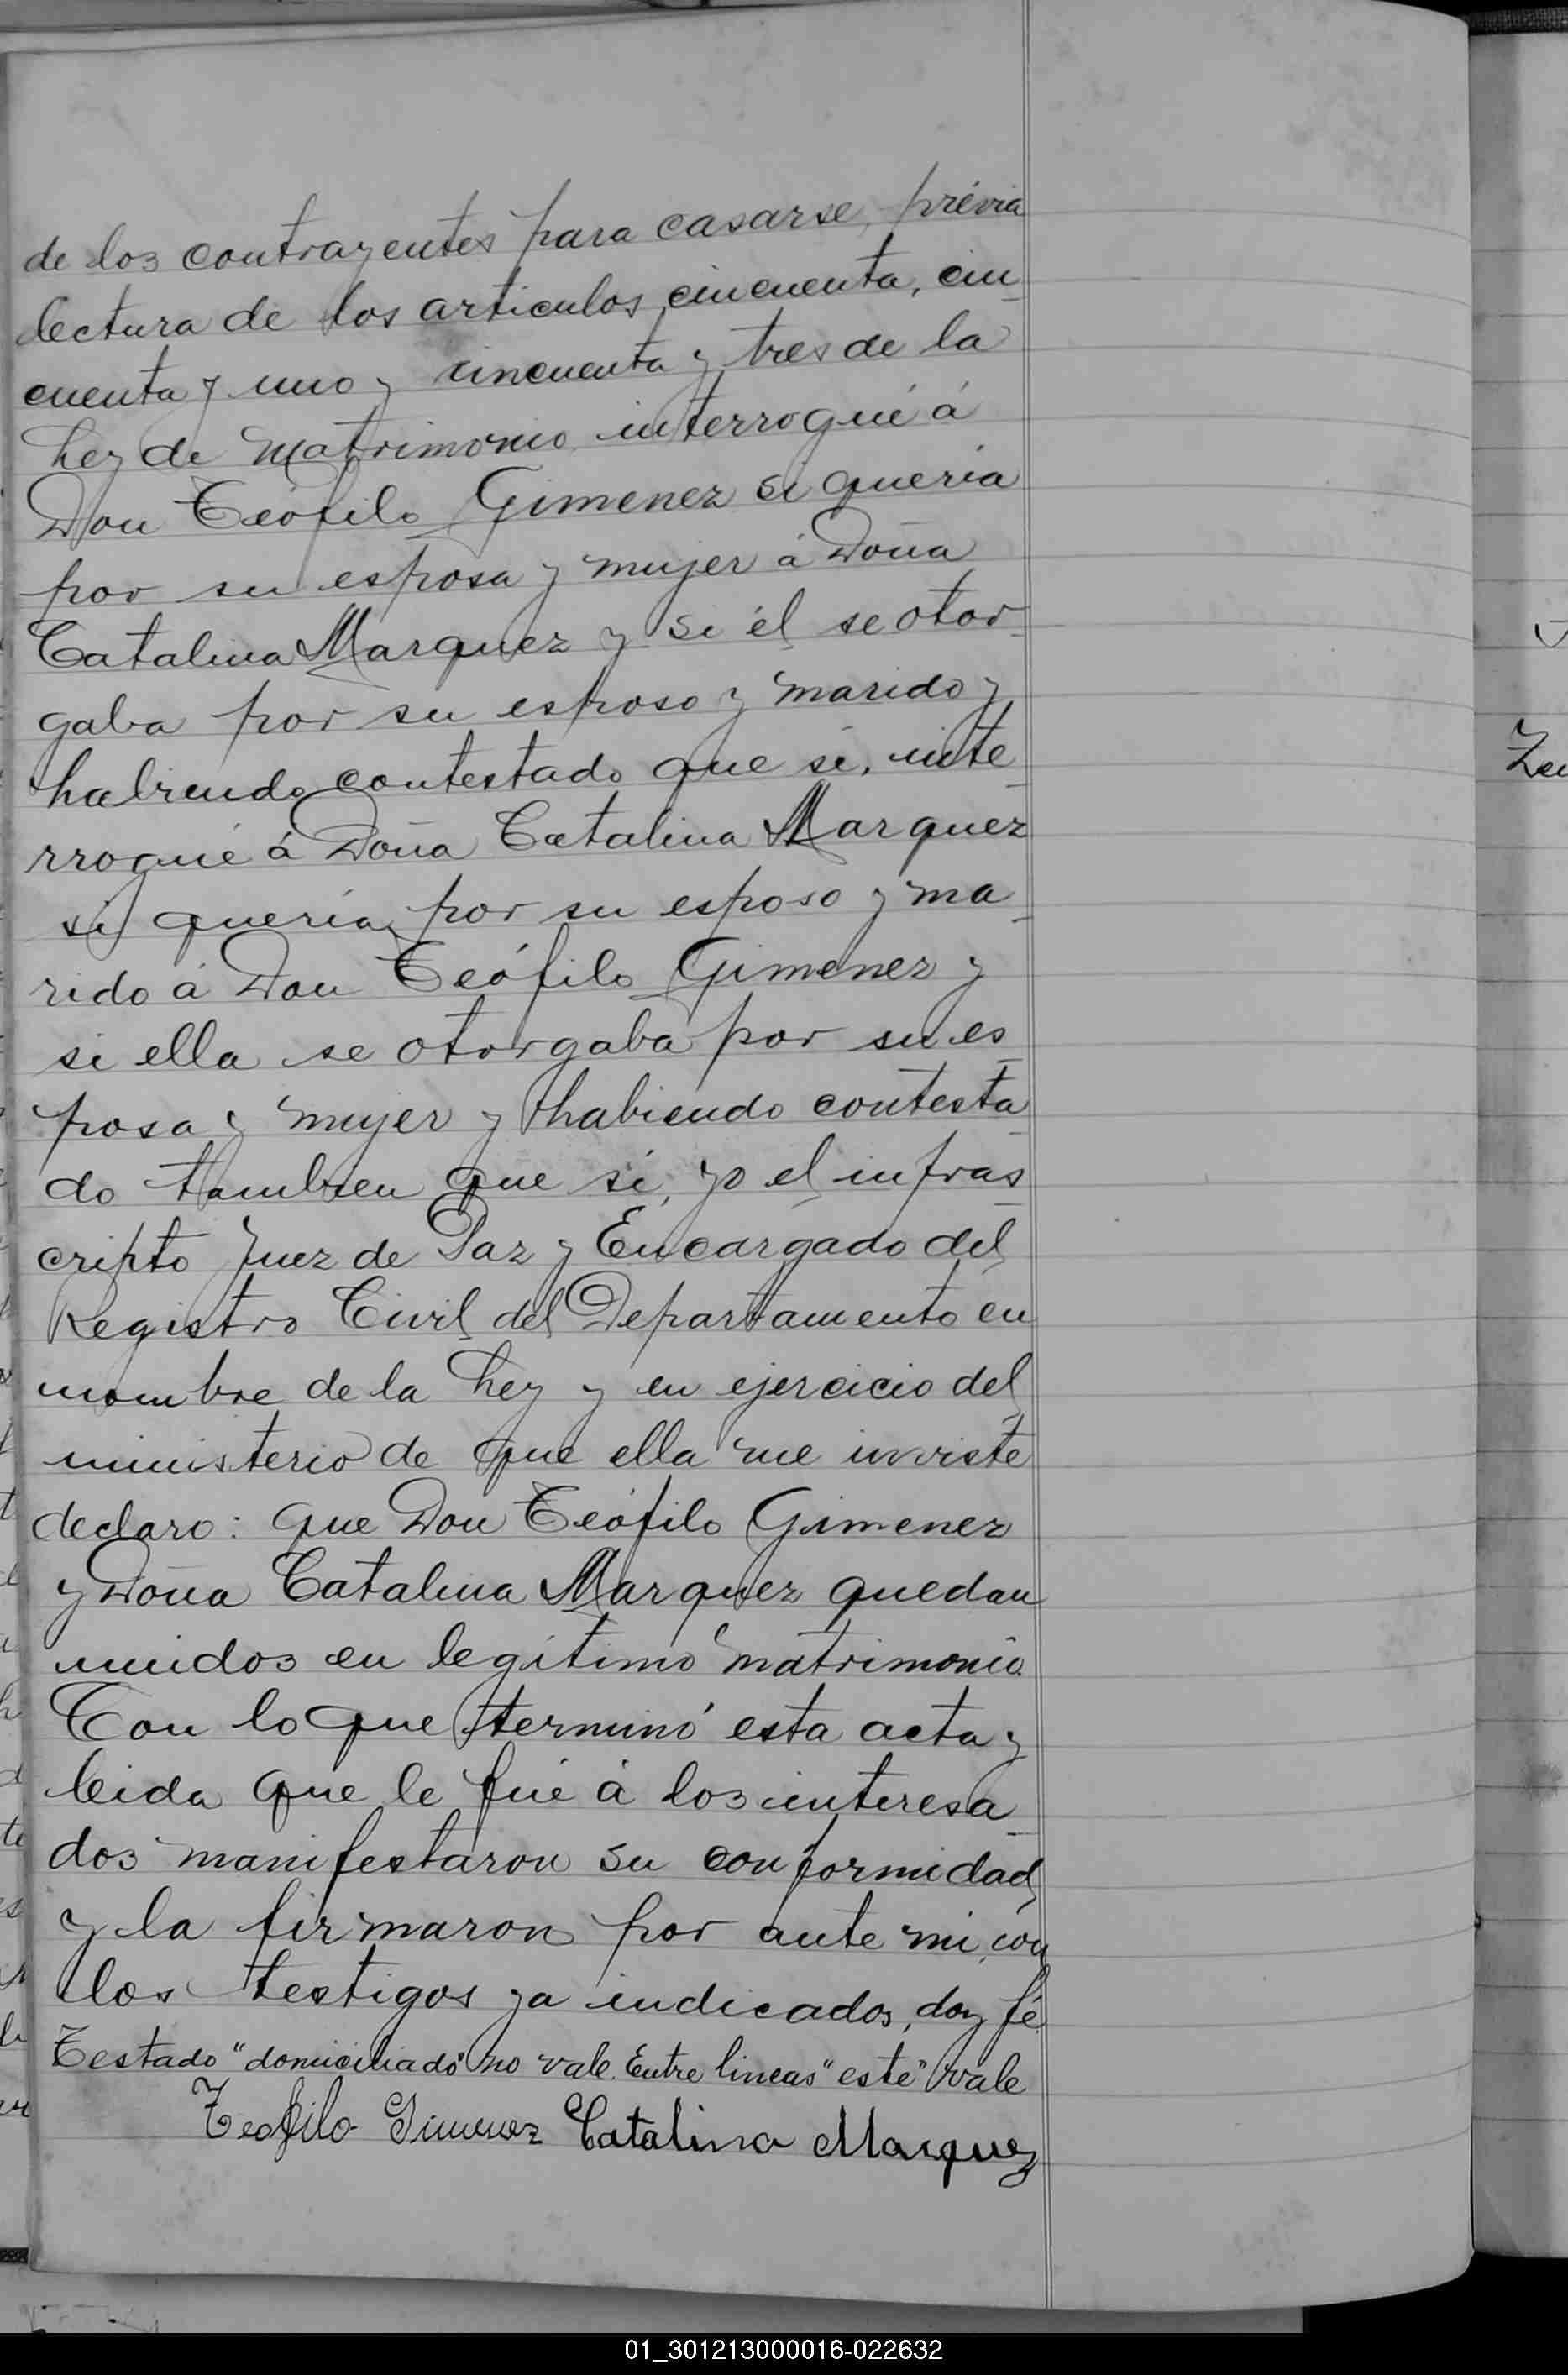 de los contrayentes para casarse, prévia
lectura de los articulos cincuenta, cin_
cuenta y uno y cincuenta y tres de la
Ley de Matrimonio interrogué á
Don Teófilo Gimenez si queria
por su esposa y mujer á Doña
Catalina Marquez y si él se otor_
gaba por su esposo y marido y
habiendo contestado que si, inte_
rrogué á Doña Catalina Marquez
si queria por su esposo y ma_
rido á Don Teófilo Gimenez y
si ella se otorgaba por su es_
posa y mujer y habiendo contesta_
do tambien que si, yo el infras_
cripto Juez de Paz y Encargado del
Registro Civil del Departamento en
nombre de la Ley y en ejercicio del
ministerio de que ella me inviste
declaro: que Don Teófilo Gimenez
y Doña Catalina Marquez quedan
unidos en legítimo matrimonio.
Con lo que terminó esta acta y
leida que le fué á los interesa_
dos manifestaron su conformidad
y la firmaron por ante mi, con
los testigos ya indicados, doy fé.
Testado "domiciliado" no vale. Entre lineas "este" vale
Teofilo Gimenez Catalina Marquez
01_301213000016-022632